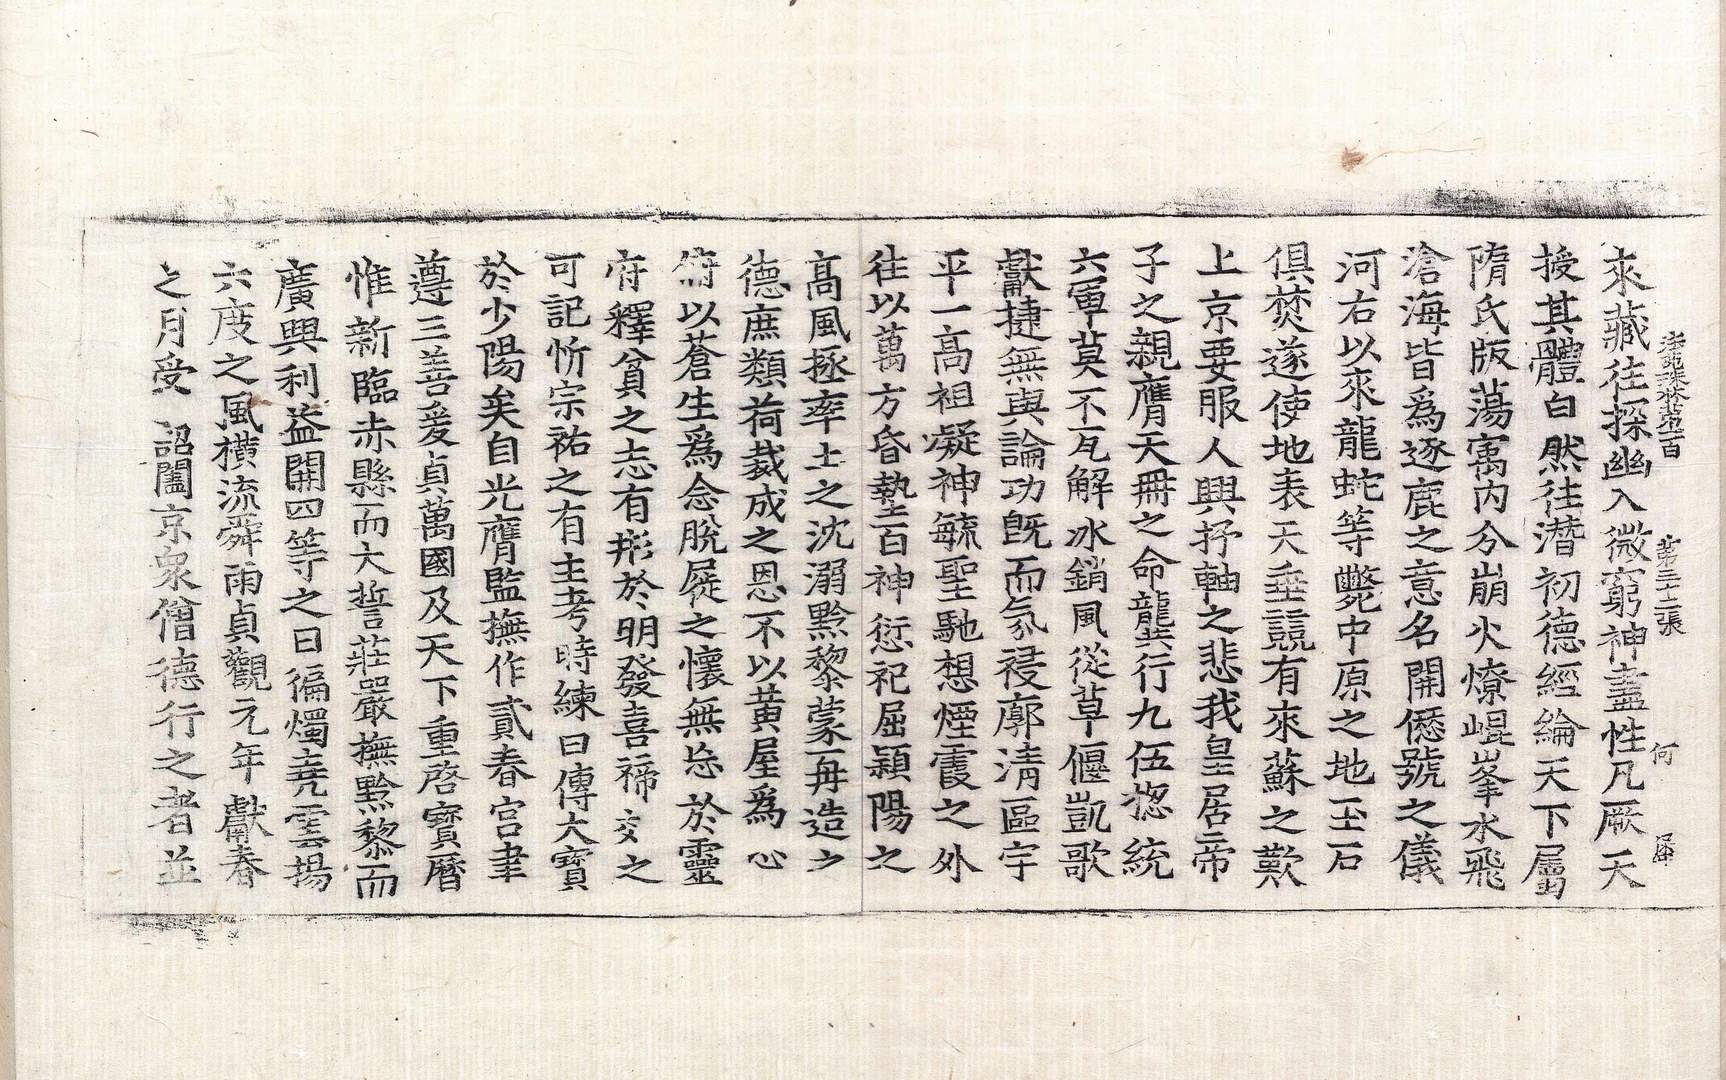 法苑珠林卷第一百 第三十二張 何
來藏往探幽入微窮神盡性凡厥天
授其體自然往潛初德經綸天下屬
隋氏版蕩寓內分崩火燎崐峯水飛
滄海皆爲逐鹿之意名開僭號之儀
河右以來龍蛇等斃中原之地玉石
俱焚遂使地表天垂誥有來蘇之歎
上京要服人興抒軸之悲我皇居帝
子之親膺天冊之命龔行九伍揔統
六軍莫不瓦解冰銷風從草偃凱歌
獻捷無與論功旣而氛祲廓清區宇
平一高祖凝神毓聖馳想煙霞之外
往以萬方昏墊百神愆祀屈潁陽之
高風拯率土之沈溺黔黎蒙再造之
德庶類荷裁成之恩不以黃屋爲心
以蒼生爲念脫屣之懷無忘於靈
府釋負之志有形於明發喜禘交之
可記忻宗祐之有主考時練日傳大寶
於少陽矣自光膺監撫作貳春宮聿
遵三善爰貞萬國及天下重啓寶曆
惟新臨赤縣而大誓莊嚴撫黔黎而
廣興利益開四等之日徧燭堯雲揚
六度之風橫流舜雨貞觀元年獻春
之月受 詔闔京衆僧德行之者並